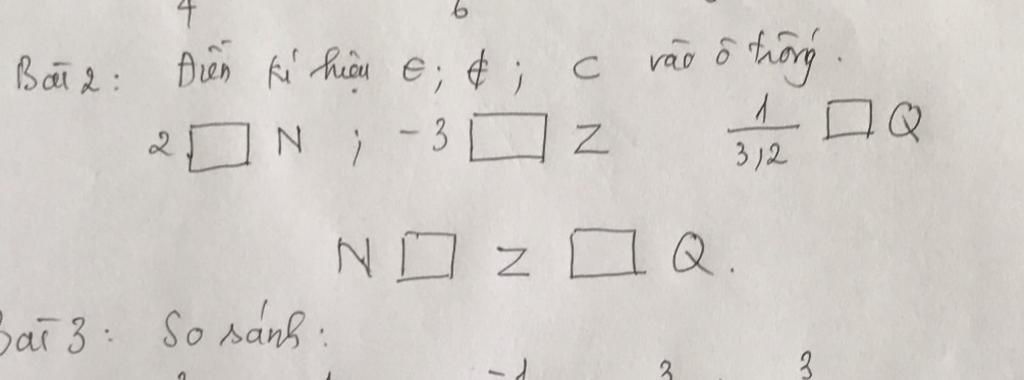 4 6
Bài 2: Điền kí hiệu ∈; ∉; ⊂ vào ô trống.
2 □ N ; -3 □ Z 1/3,2 □ Q
N □ Z □ Q.
Bài 3: So sánh:
-1 3 3